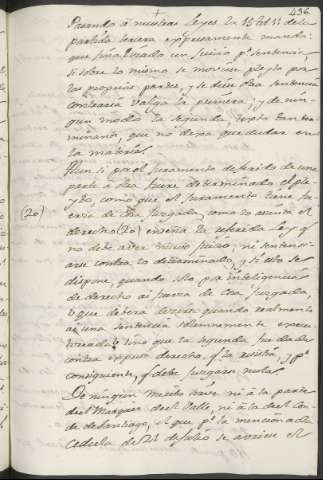 436
Pasando á nuestras leyes la 15 tit 11 de la
partida tercera expresamente manda:
que finalizado un juicio pr sentencia,
si sobre lo mismo se moviere pleyto por
las propias partes, y se diere otra sentencia
contraria valga la primera; y de nin-
gun modo la segunda, texto tan ter-
minante, que no dexa que dudar en
la materia.
Aun si por el juramento deferido de una
parte á otra fuere determinado el ple-
yto, como que el juramento tiene fu-
erza de cosa juzgada, como lo asienta el
(20)
derecho (20) enseña la referida ley q
no debe abrir nuevo juicio; ni sentenci-
arse contra lo determinado, y si esto se
dispone, quando solo por inteligencia
de derecho ai fuerza de cosa juzgada,
lo que deberá decirse quando realmente
ai una sentencia solemnemente execu-
toriada, sino que la segunda, fue dada
contra expreso derecho, q la resiste, y pr
consiguiente, q debe juzgarse nula.
De ningun merito hace ni á la parte
del Marques del Valle, ni á la del Con-
de de Santiago, el que pr la mencionada
Cedula de 21 de Julio se avisase el